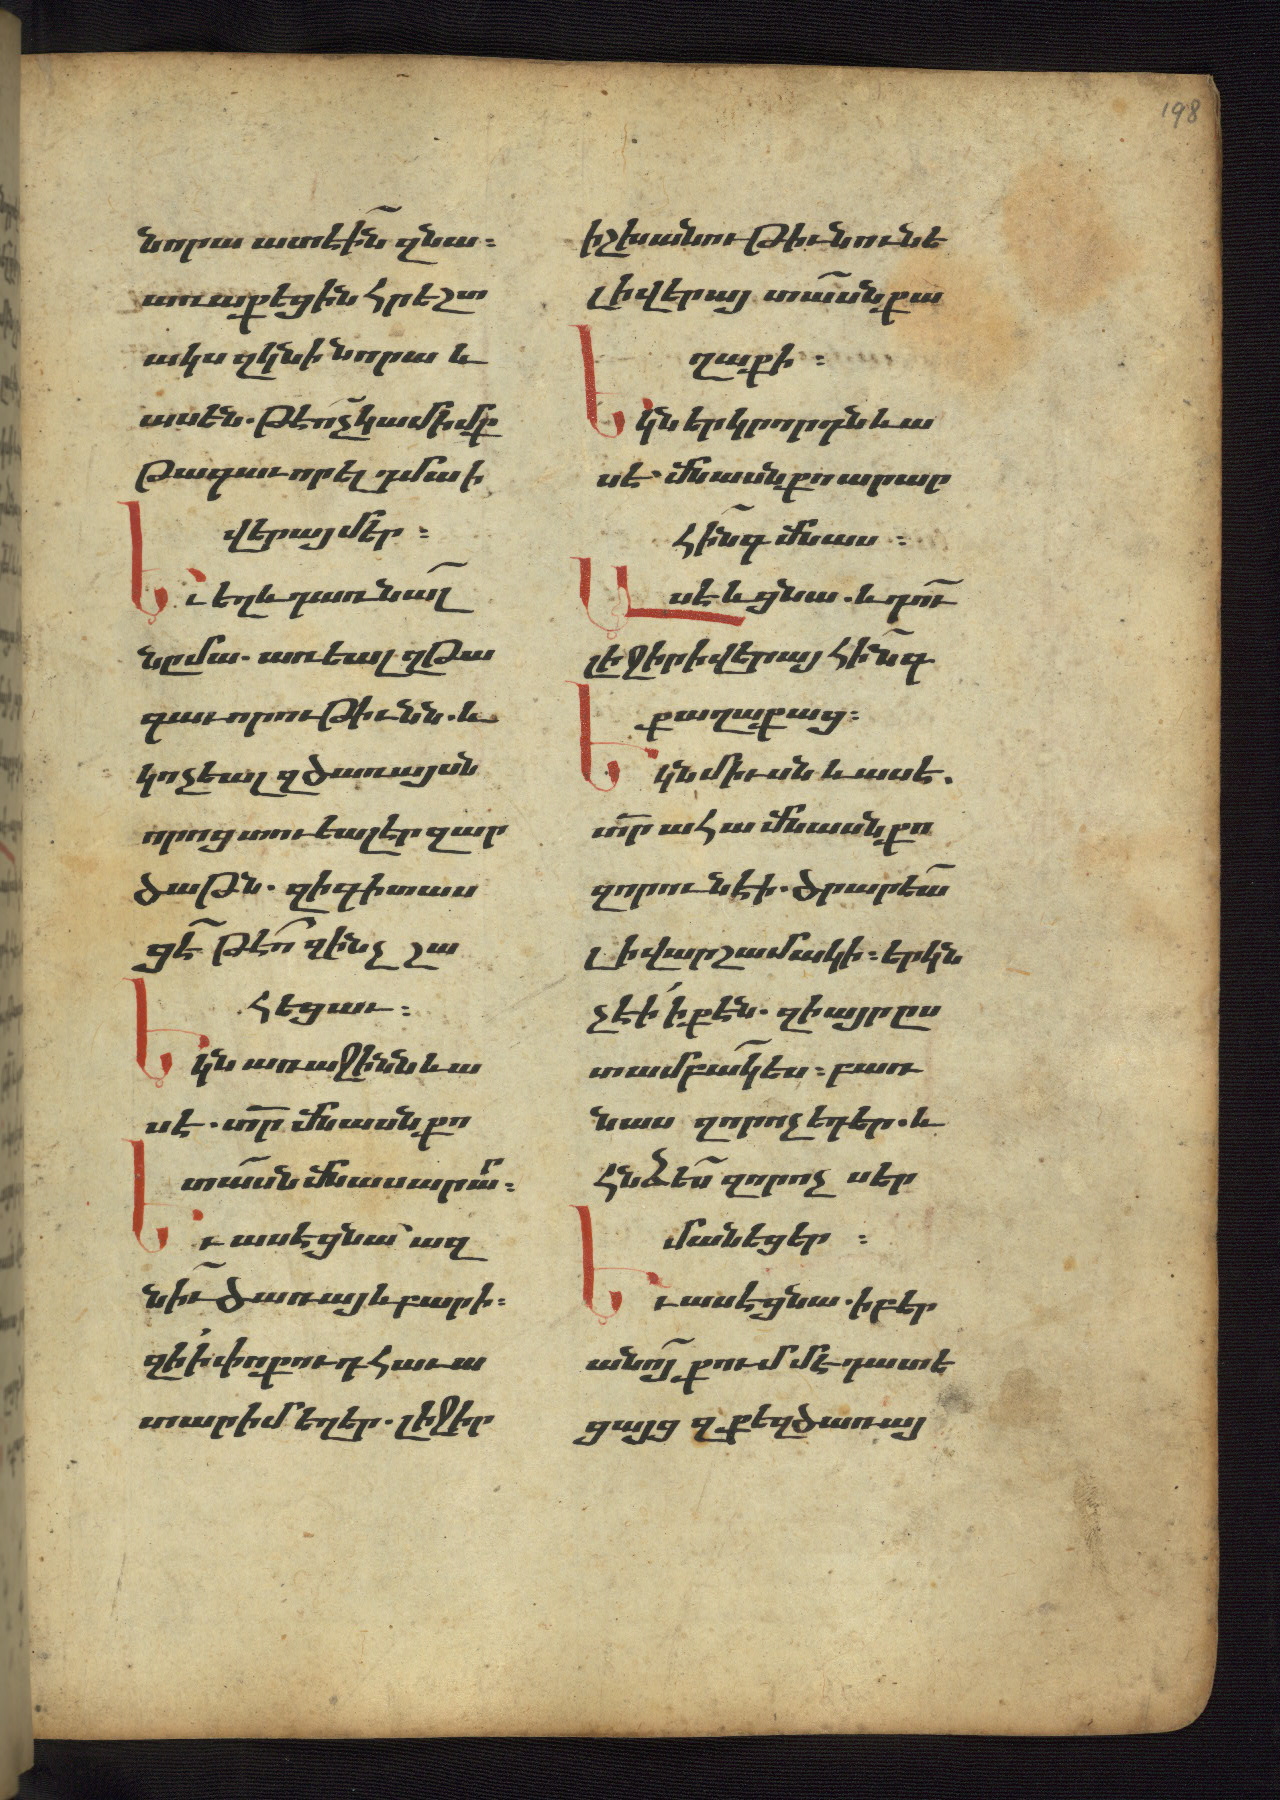 198
նորա ատէի՜ն զնա։
առաքեցին հրեշտ
ակս զկնի նորա և
ասեն. թէո՜չ կամիմք
թագաւորել դմա ի
վերայ մեր։
Եւ եղև դառնա՜լ
նրմա. առեալ զթա
գաւորութիւնն. և
կոչեալ զծառայսն
որոց տուեալ էր զար
ծաթն. զի գիտաս
ցէ՜ թէո՜ զինչ շա
հեցաւ։
Եկն առաջինն և ա
սէ. տ՜ր մնասն քո
տա՜սն մնաս արա՜ր։
Եւ ասէ ցնա՜ ազ
նի՜ւ ծառայ և բարի։
զի ի փոքուդ հաւա
տարիմ եղեր. լիջիր
իշխանութիւն ունե
լ ի վերայ տա՜սն քա
ղաքի։
Եկն երկրորդն և ա
սէ. մնասն քո արար
հի՜նգ մնաս։
Ասէ և ցնա. և դո՜ւ
լիջիր ի վերայ հի՜նգ
քաղաքաց։
Եկն միւսն և ասէ.
տ՜ր ահա մնասն քո
զոր ունէի. ծրարեա՜
լ ի վարշամակի։ երկն
չէի ի քէն. զի այր ըս
տամբա՜կ ես։ բառ
նաս զոր ոչ եդեր. և
հնձե՜ս զոր ոչ սեր
մանեցեր։
Եւ ասէ ցնա. ի բեր
անո՜յ քումմէ դատե
ցայց զքեզ ծառայ